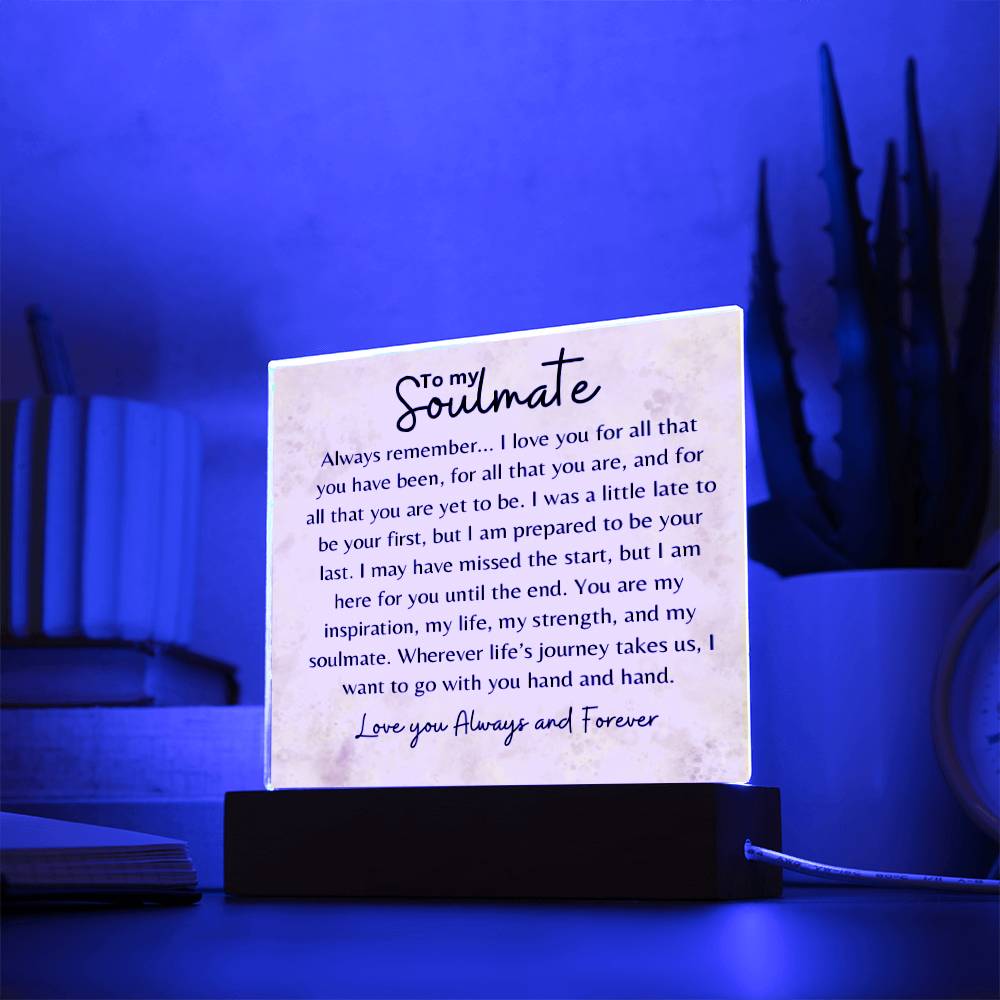 To my
Soulmate
Always remember... I love you for all that
you have been, for all that you are, and for
all that you are yet to be. I was a little late to
be your first, but I am prepared to be your
last. I may have missed the start, but I am
here for you until the end. You are my
inspiration, my life, my strength, and my
soulmate. Wherever life’s journey takes us, I
want to go with you hand and hand.
Love you Always and Forever